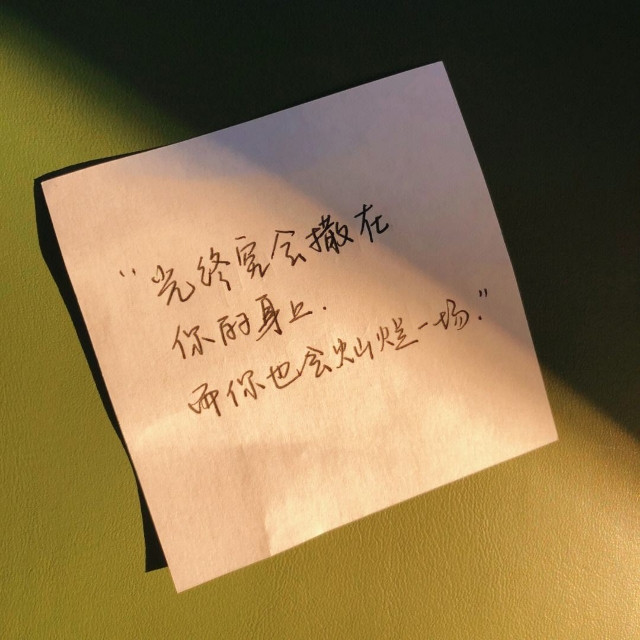 “光终究会撒在
你的身上.
而你也会灿烂一场.”